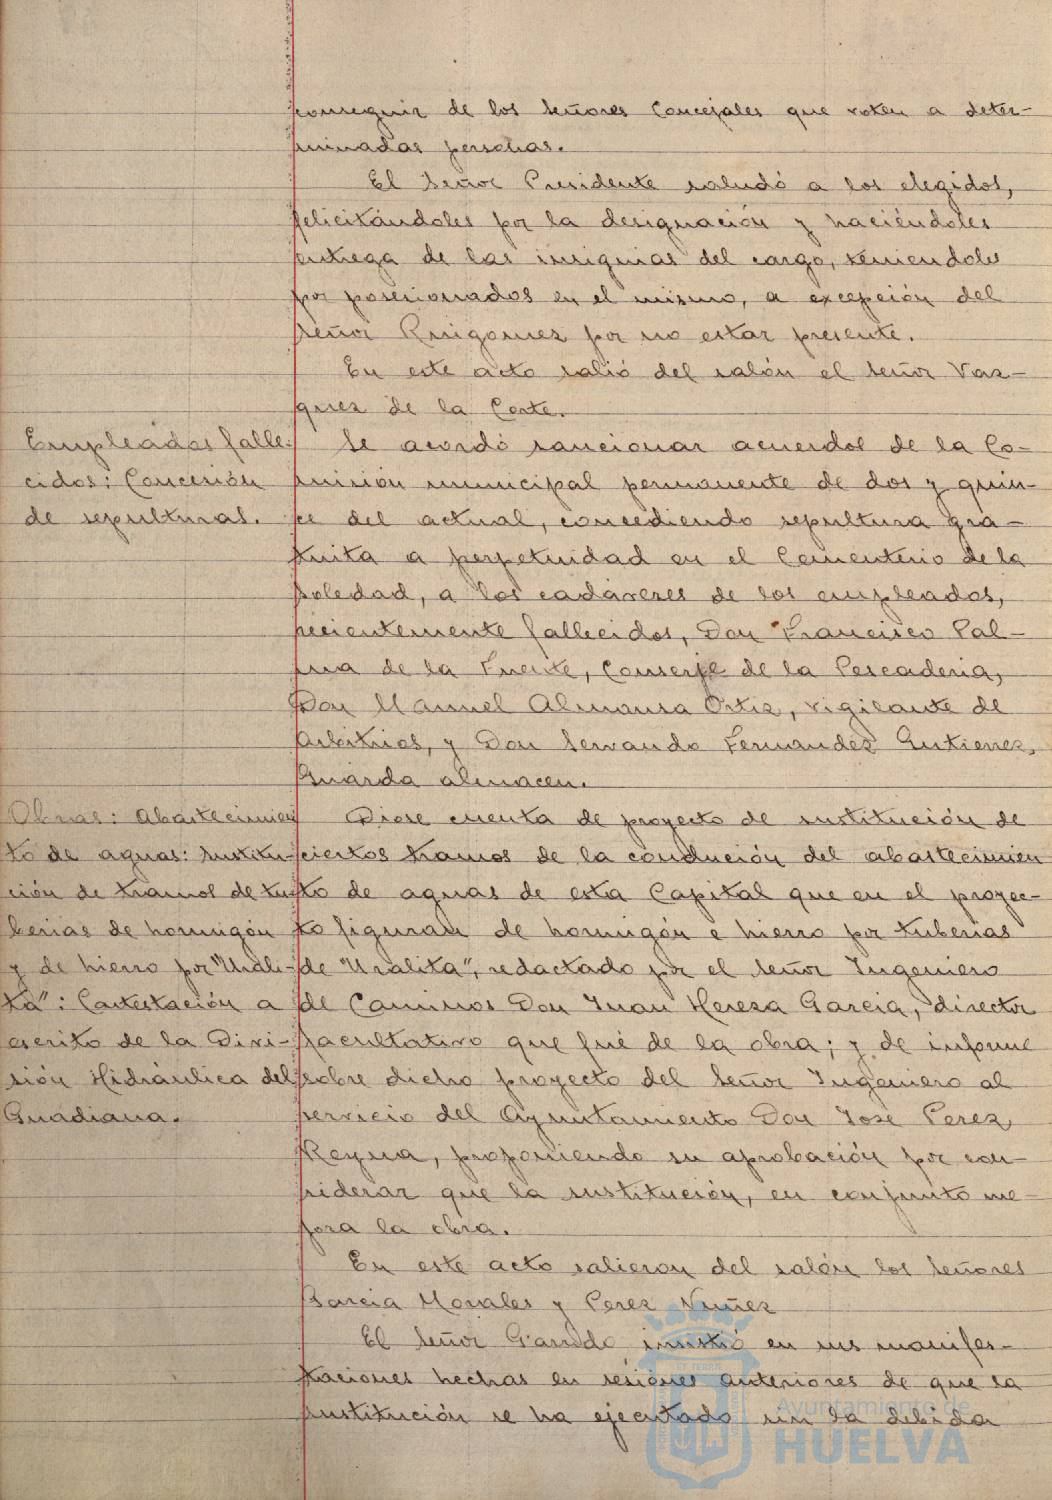 conseguir de los Señores Concejales que voten a deter-
minadas personas.
El Señor Presidente saludó a los elegidos,
felicitándoles por la designación y haciéndoles
entrega de las insignias del cargo, teniendoles
por posesionados en el mismo, a excepción del
Señor Ruigomez por no estar presente.
En este acto salió del salón el Señor Vaz-
quez de la Corte.
Empleados falle-
cidos: Concesión
de sepulturas.
Se acordó sancionar acuerdos de la Co-
misión municipal permanente de dos y quin-
ce del actual, concediendo sepultura gra-
tuita a perpetuidad en el Cementerio de la
Soledad, a los cadáveres de los empleados,
recientemente fallecidos, Don Francisco Pal-
ma de la Fuente, Conserje de la Pescaderia,
Don Manuel Almansa Ortiz, vigilante de
Arbitrios, y Don Servando Fernandez Gutierrez,
Guarda almacen.
Obras: Abastecimien
to de aguas: sustitu-
ción de tramos de tu-
berias de hormigón
y de hierro por "Urali-
ta": Contestación a
escrito de la Divi-
sión Hidráulica del
Guadiana.
Diose cuenta de proyecto de sustitución de
ciertos tramos de la condución del abastecimien
to de aguas de esta Capital que en el proyec-
to figuran de hormigón e hierro por tuberias
de "Uralita", redactado por el Señor Ingeniero
de Caminos Don Juan Hereza Garcia, director
facultativo que fué de la obra; y de informe
sobre dicho proyecto del Señor Ingeniero al
servicio del Ayuntamiento Don José Perez
Reyna, proponiendo su aprobación por con-
siderar que la sustitución, en conjunto me-
jora la obra.
En este acto salieron del salón los Señores
Garcia Morales y Perez Nuñez
El Señor Garrido insistió en sus manifes-
taciones hechas en sesiones anteriores de que la
sustitución se ha ejecutado sin la debida
Ayuntamiento de
HUELVA